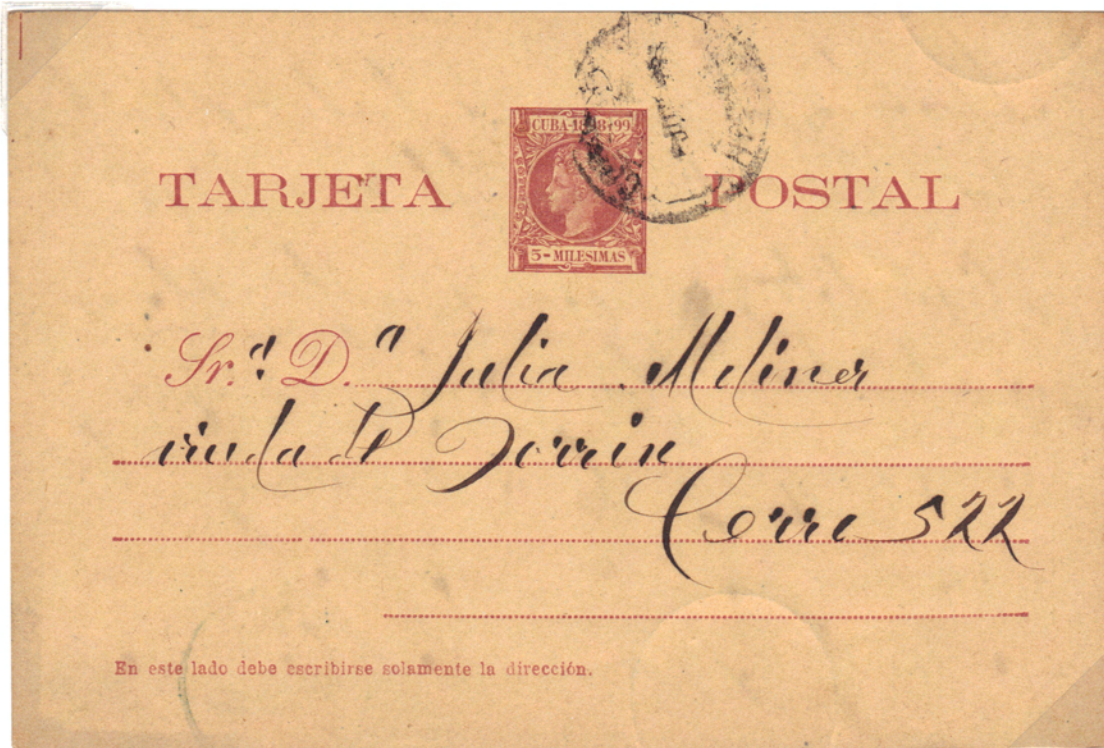 CUBA-1898 y 99
TARJETA POSTAL
5-MILESIMAS
Sr.ª D.ª Julia Moliner
viuda de Torrin
Cerro 522
En este lado debe escribirse solamente la dirección.